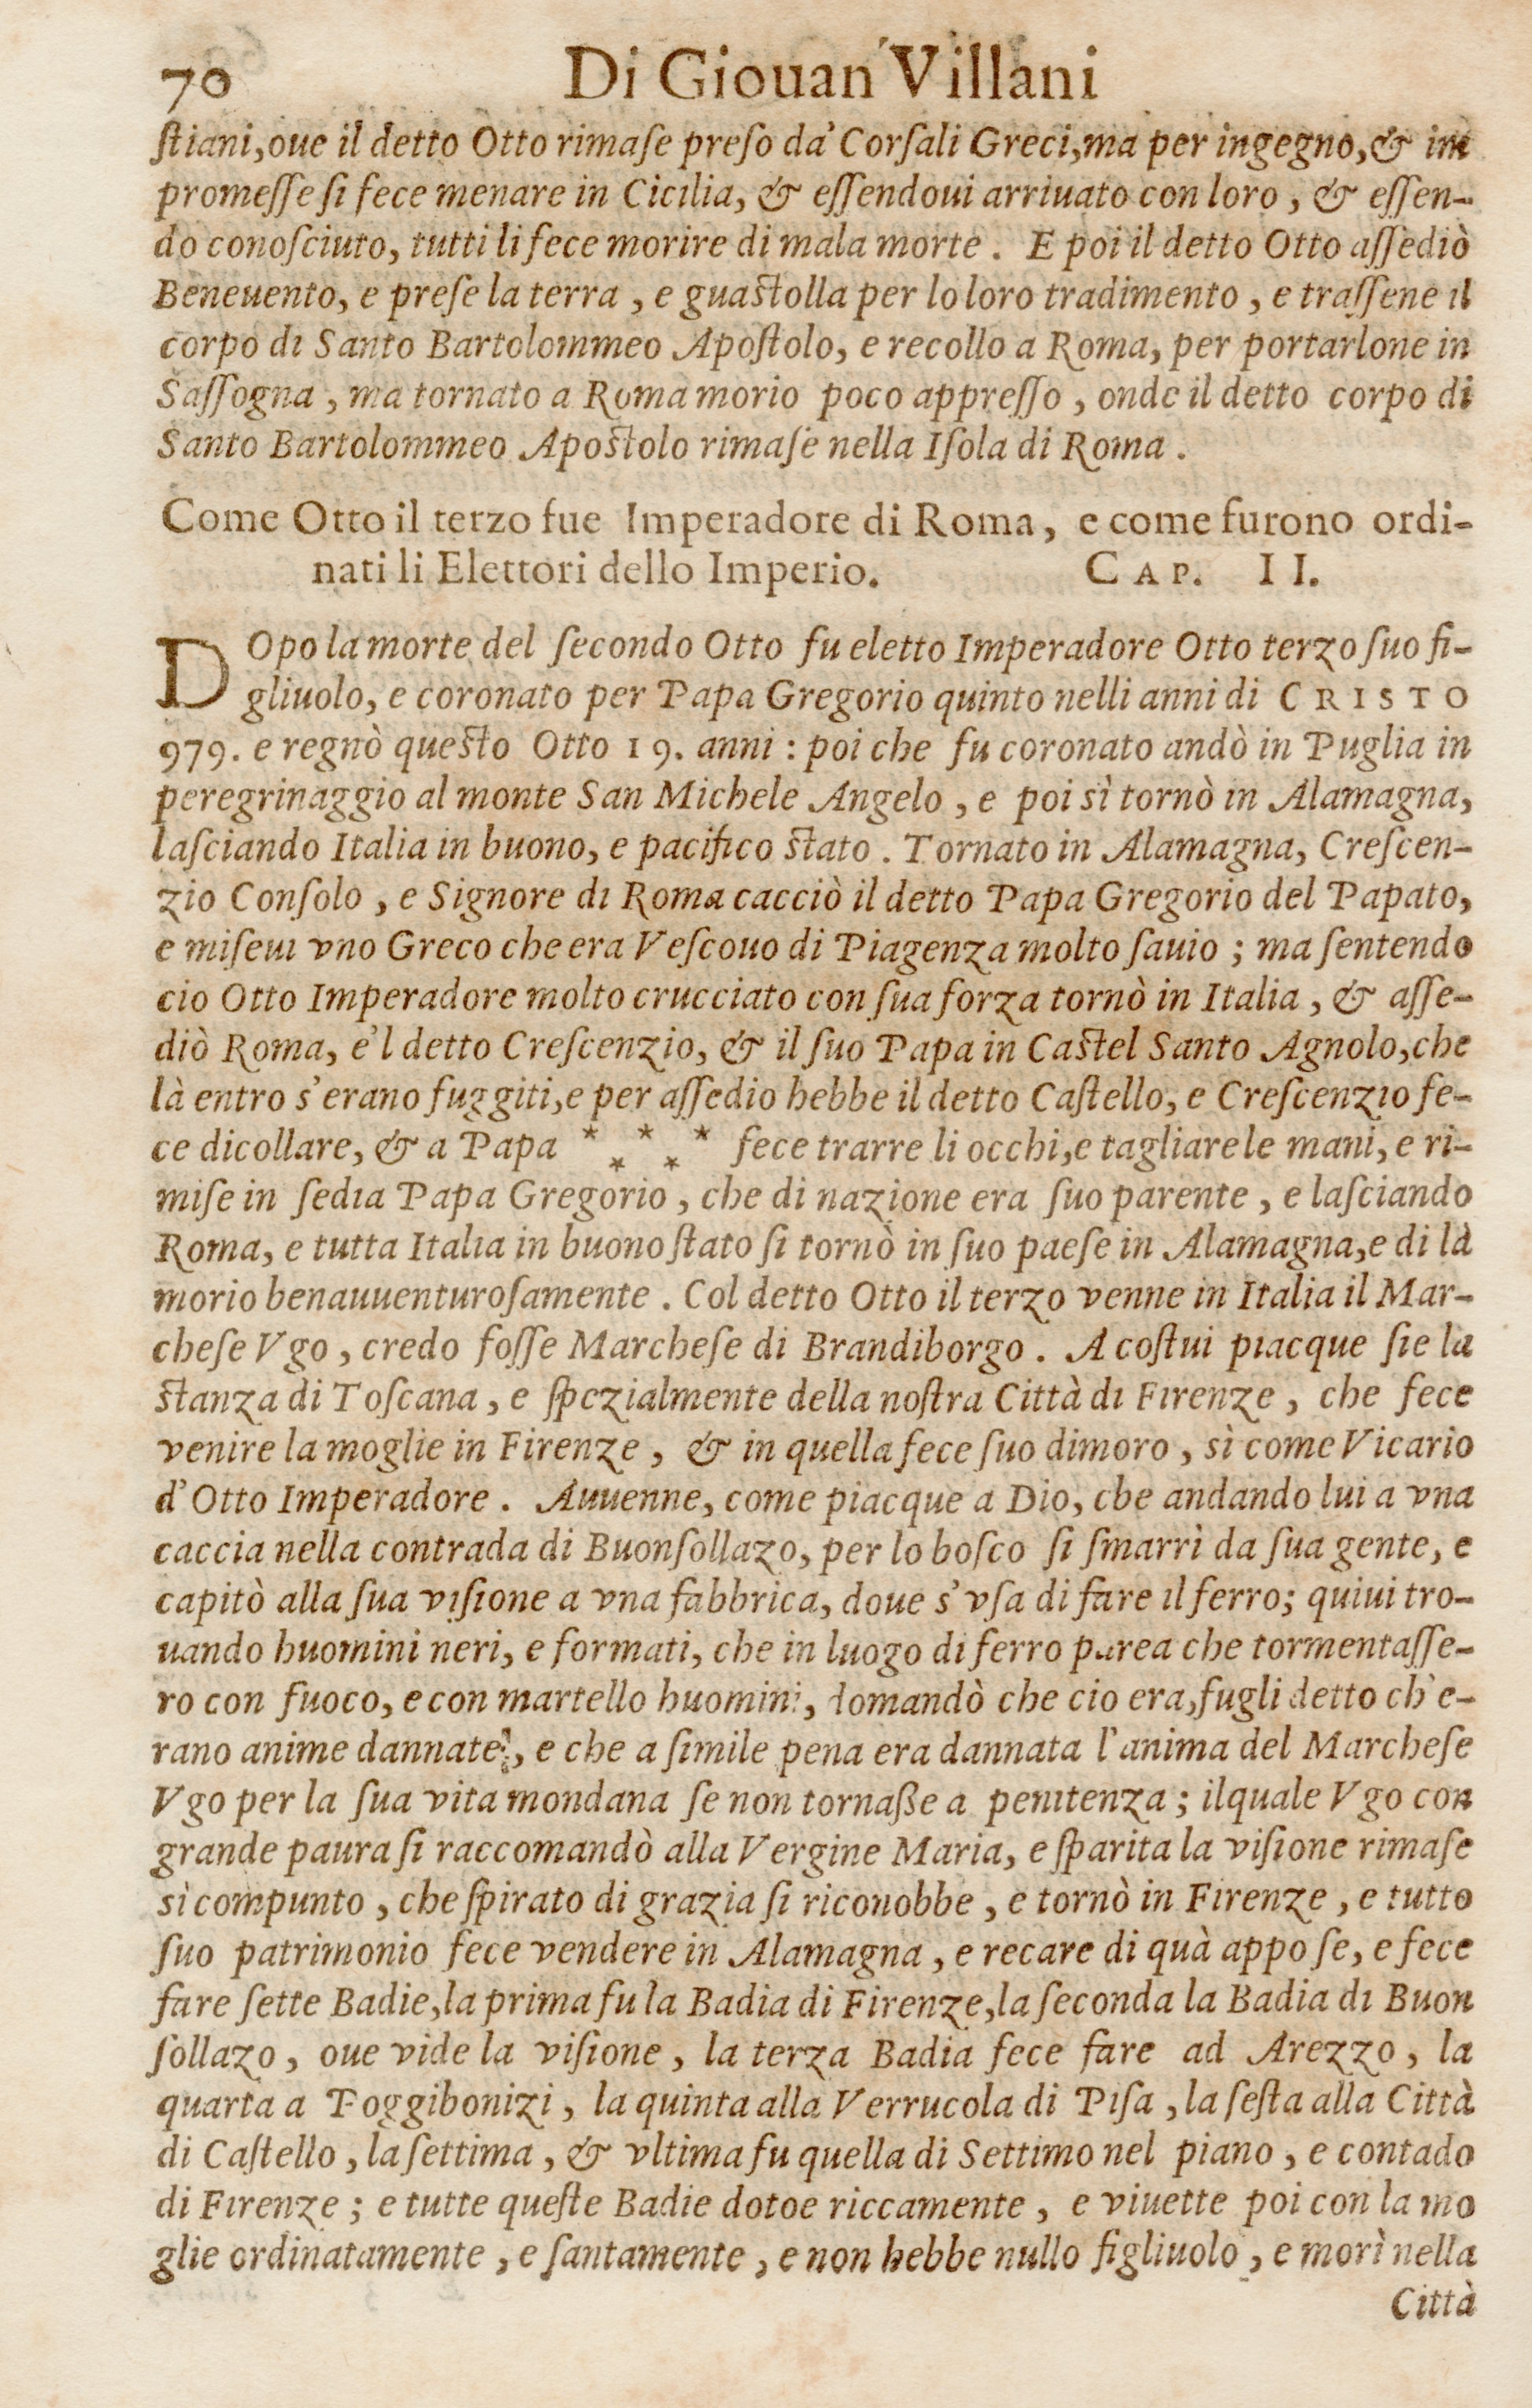 70 Di Giouan Villani
ſtiani, oue il detto Otto rimaſe preſo da' Corſali Greci, ma per ingegno, & im
promeſſe ſi fece menare in Cicilia, & eſſendoui arriuato con loro, & eſſen-
do conoſciuto, tutti li fece morire di mala morte. E poi il detto Otto aſſediò
Beneuento, e preſe la terra, e guaſtolla per lo loro tradimento, e traſſene il
corpo di Santo Bartolommeo Apoſtolo, e recollo a Roma, per portarlone in
Saſſogna, ma tornato a Roma morio poco appreſſo, onde il detto corpo di
Santo Bartolommeo Apoſtolo rimaſe nella Iſola di Roma.
Come Otto il terzo fue Imperadore di Roma, e come furono ordi-
nati li Elettori dello Imperio. CAP. II.
DOpo la morte del ſecondo Otto fu eletto Imperadore Otto terzo ſuo fi-
gliuolo, e coronato per Papa Gregorio quinto nelli anni di CRISTO
979. e regnò queſto Otto 19. anni: poi che fu coronato andò in Puglia in
peregrinaggio al monte San Michele Angelo, e poi sì tornò in Alamagna,
laſciando Italia in buono, e pacifico ſtato. Tornato in Alamagna, Creſcen-
zio Conſolo, e Signore di Roma cacciò il detto Papa Gregorio del Papato,
e miſeui vno Greco che era Veſcouo di Piagenza molto ſauio; ma ſentendo
cio Otto Imperadore molto crucciato con ſua forza tornò in Italia, & aſſe-
diò Roma, e'l detto Creſcenzio, & il ſuo Papa in Caſtel Santo Agnolo, che
là entro s'erano fuggiti, e per aſſedio hebbe il detto Caſtello, e Creſcenzio fe-
ce dicollare, & a Papa * * * * * fece trarre li occhi, e tagliare le mani, e ri-
miſe in ſedia Papa Gregorio, che di nazione era ſuo parente, e laſciando
Roma, e tutta Italia in buono ſtato ſi tornò in ſuo paeſe in Alamagna, e di là
morio benauuenturoſamente. Col detto Otto il terzo venne in Italia il Mar-
cheſe Vgo, credo foſſe Marcheſe di Brandiborgo. A coſtui piacque ſie la
ſtanza di Toſcana, e ſpezialmente della noſtra Città di Firenze, che fece
venire la moglie in Firenze, & in quella fece ſuo dimoro, sì come Vicario
d'Otto Imperadore. Auuenne, come piacque a Dio, che andando lui a vna
caccia nella contrada di Buonſollazo, per lo boſco ſi ſmarrì da ſua gente, e
capitò alla ſua viſione a vna fabbrica, doue s'vſa di fare il ferro; quiui tro-
uando huomini neri, e formati, che in luogo di ferro parea che tormentaſſe-
ro con fuoco, e con martello huomini, domandò che cio era, fugli detto ch'e-
rano anime dannate, e che a ſimile pena era dannata l'anima del Marcheſe
Vgo per la ſua vita mondana ſe non tornaße a penitenza; ilquale Vgo con
grande paura ſi raccomandò alla Vergine Maria, e ſparita la viſione rimaſe
sì compunto, che ſpirato di grazia ſi riconobbe, e tornò in Firenze, e tutto
ſuo patrimonio fece vendere in Alamagna, e recare di quà appo ſe, e fece
fare ſette Badie, la prima fu la Badia di Firenze, la ſeconda la Badia di Buon
ſollazo, oue vide la viſione, la terza Badia fece fare ad Arezzo, la
quarta a Poggibonizi, la quinta alla Verrucola di Piſa, la ſeſta alla Città
di Caſtello, la ſettima, & vltima fu quella di Settimo nel piano, e contado
di Firenze; e tutte queſte Badie dotoe riccamente, e viuette poi con la mo
glie ordinatamente, e ſantamente, e non hebbe nullo figliuolo, e morì nella
Città